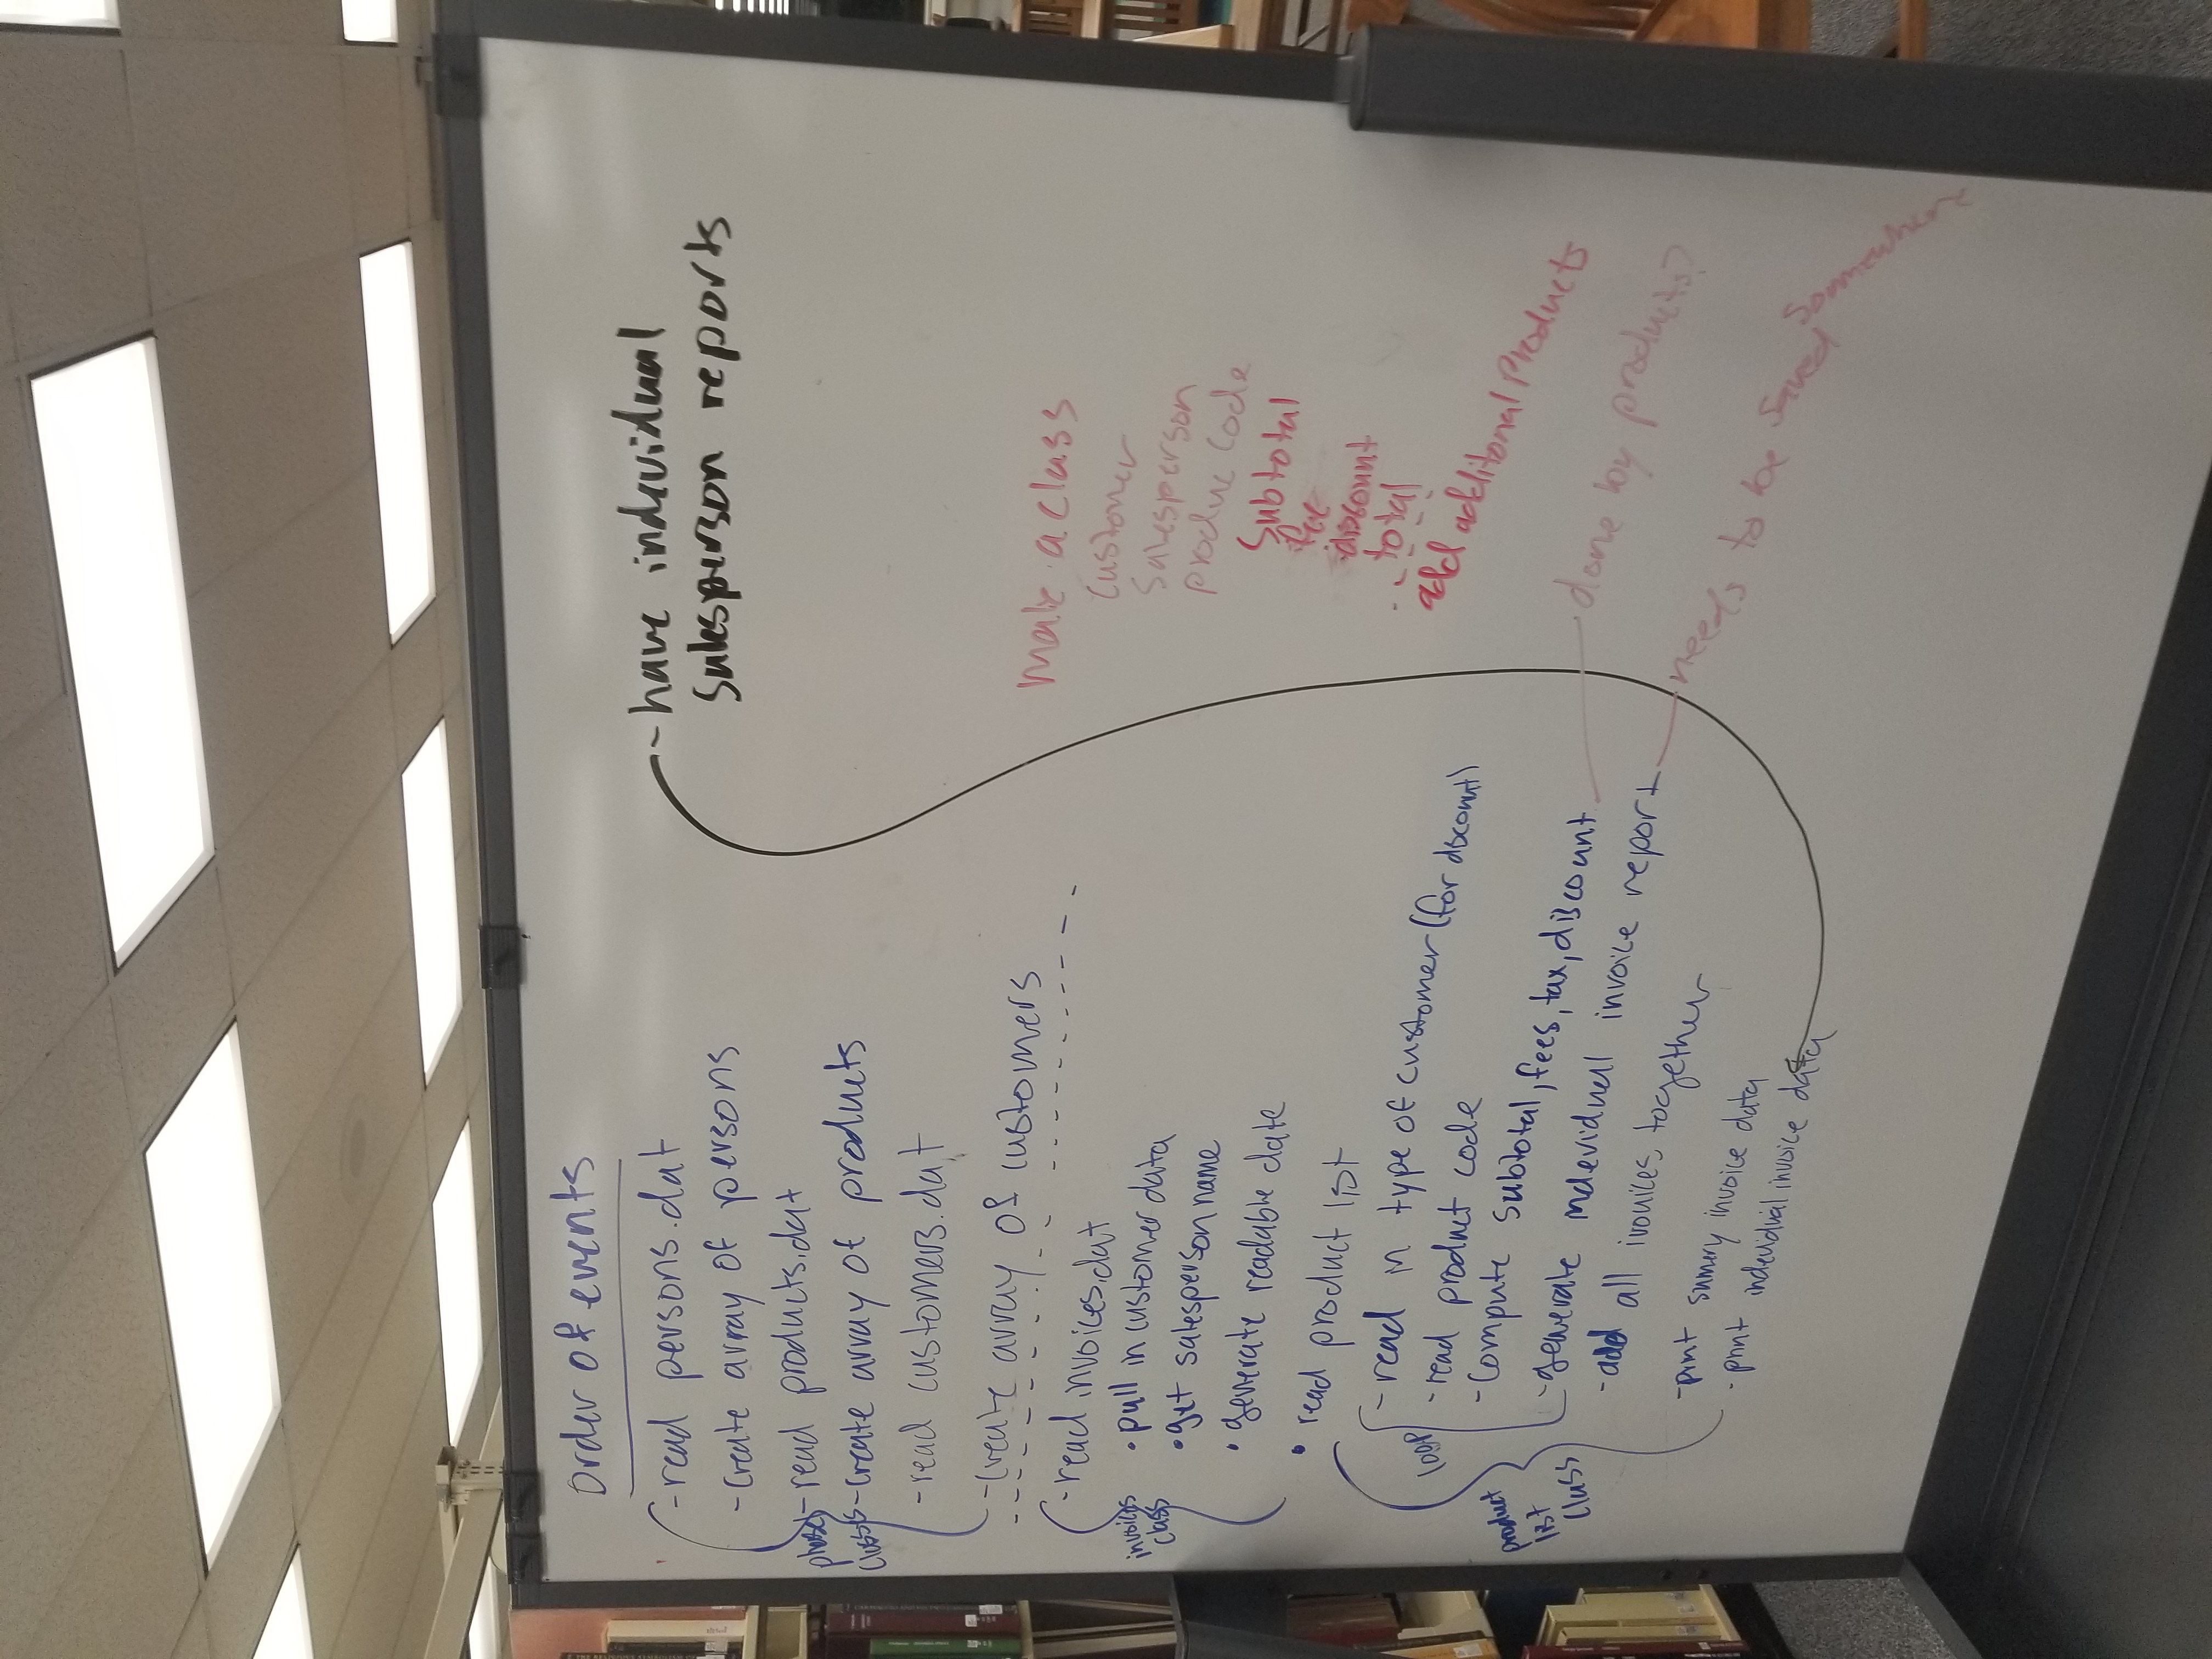 Order of events
-read persons.dat
-Create array of persons
-read products.dat
-Create array of products
-read customers.dat
-Create array of customers
phase1
classes
-read invoices.dat
•pull in customer data
•get salesperson name
•generate readable date
•read product list
invoices
class
-read in type of customer (for discount)
-read product code
-Compute subtotal, fees, tax, discount
-generate indevidual invoice report
loop
-add all ivouices together
-print sumery invoice data
-print indevidual invoice data
product
list
class
-have indevidual
salesperson reports
Make a class
Customer
Salesperson
produc code
Subtotal
fee
discount
total
add additonal products
done by products?
needs to be saved somewhere